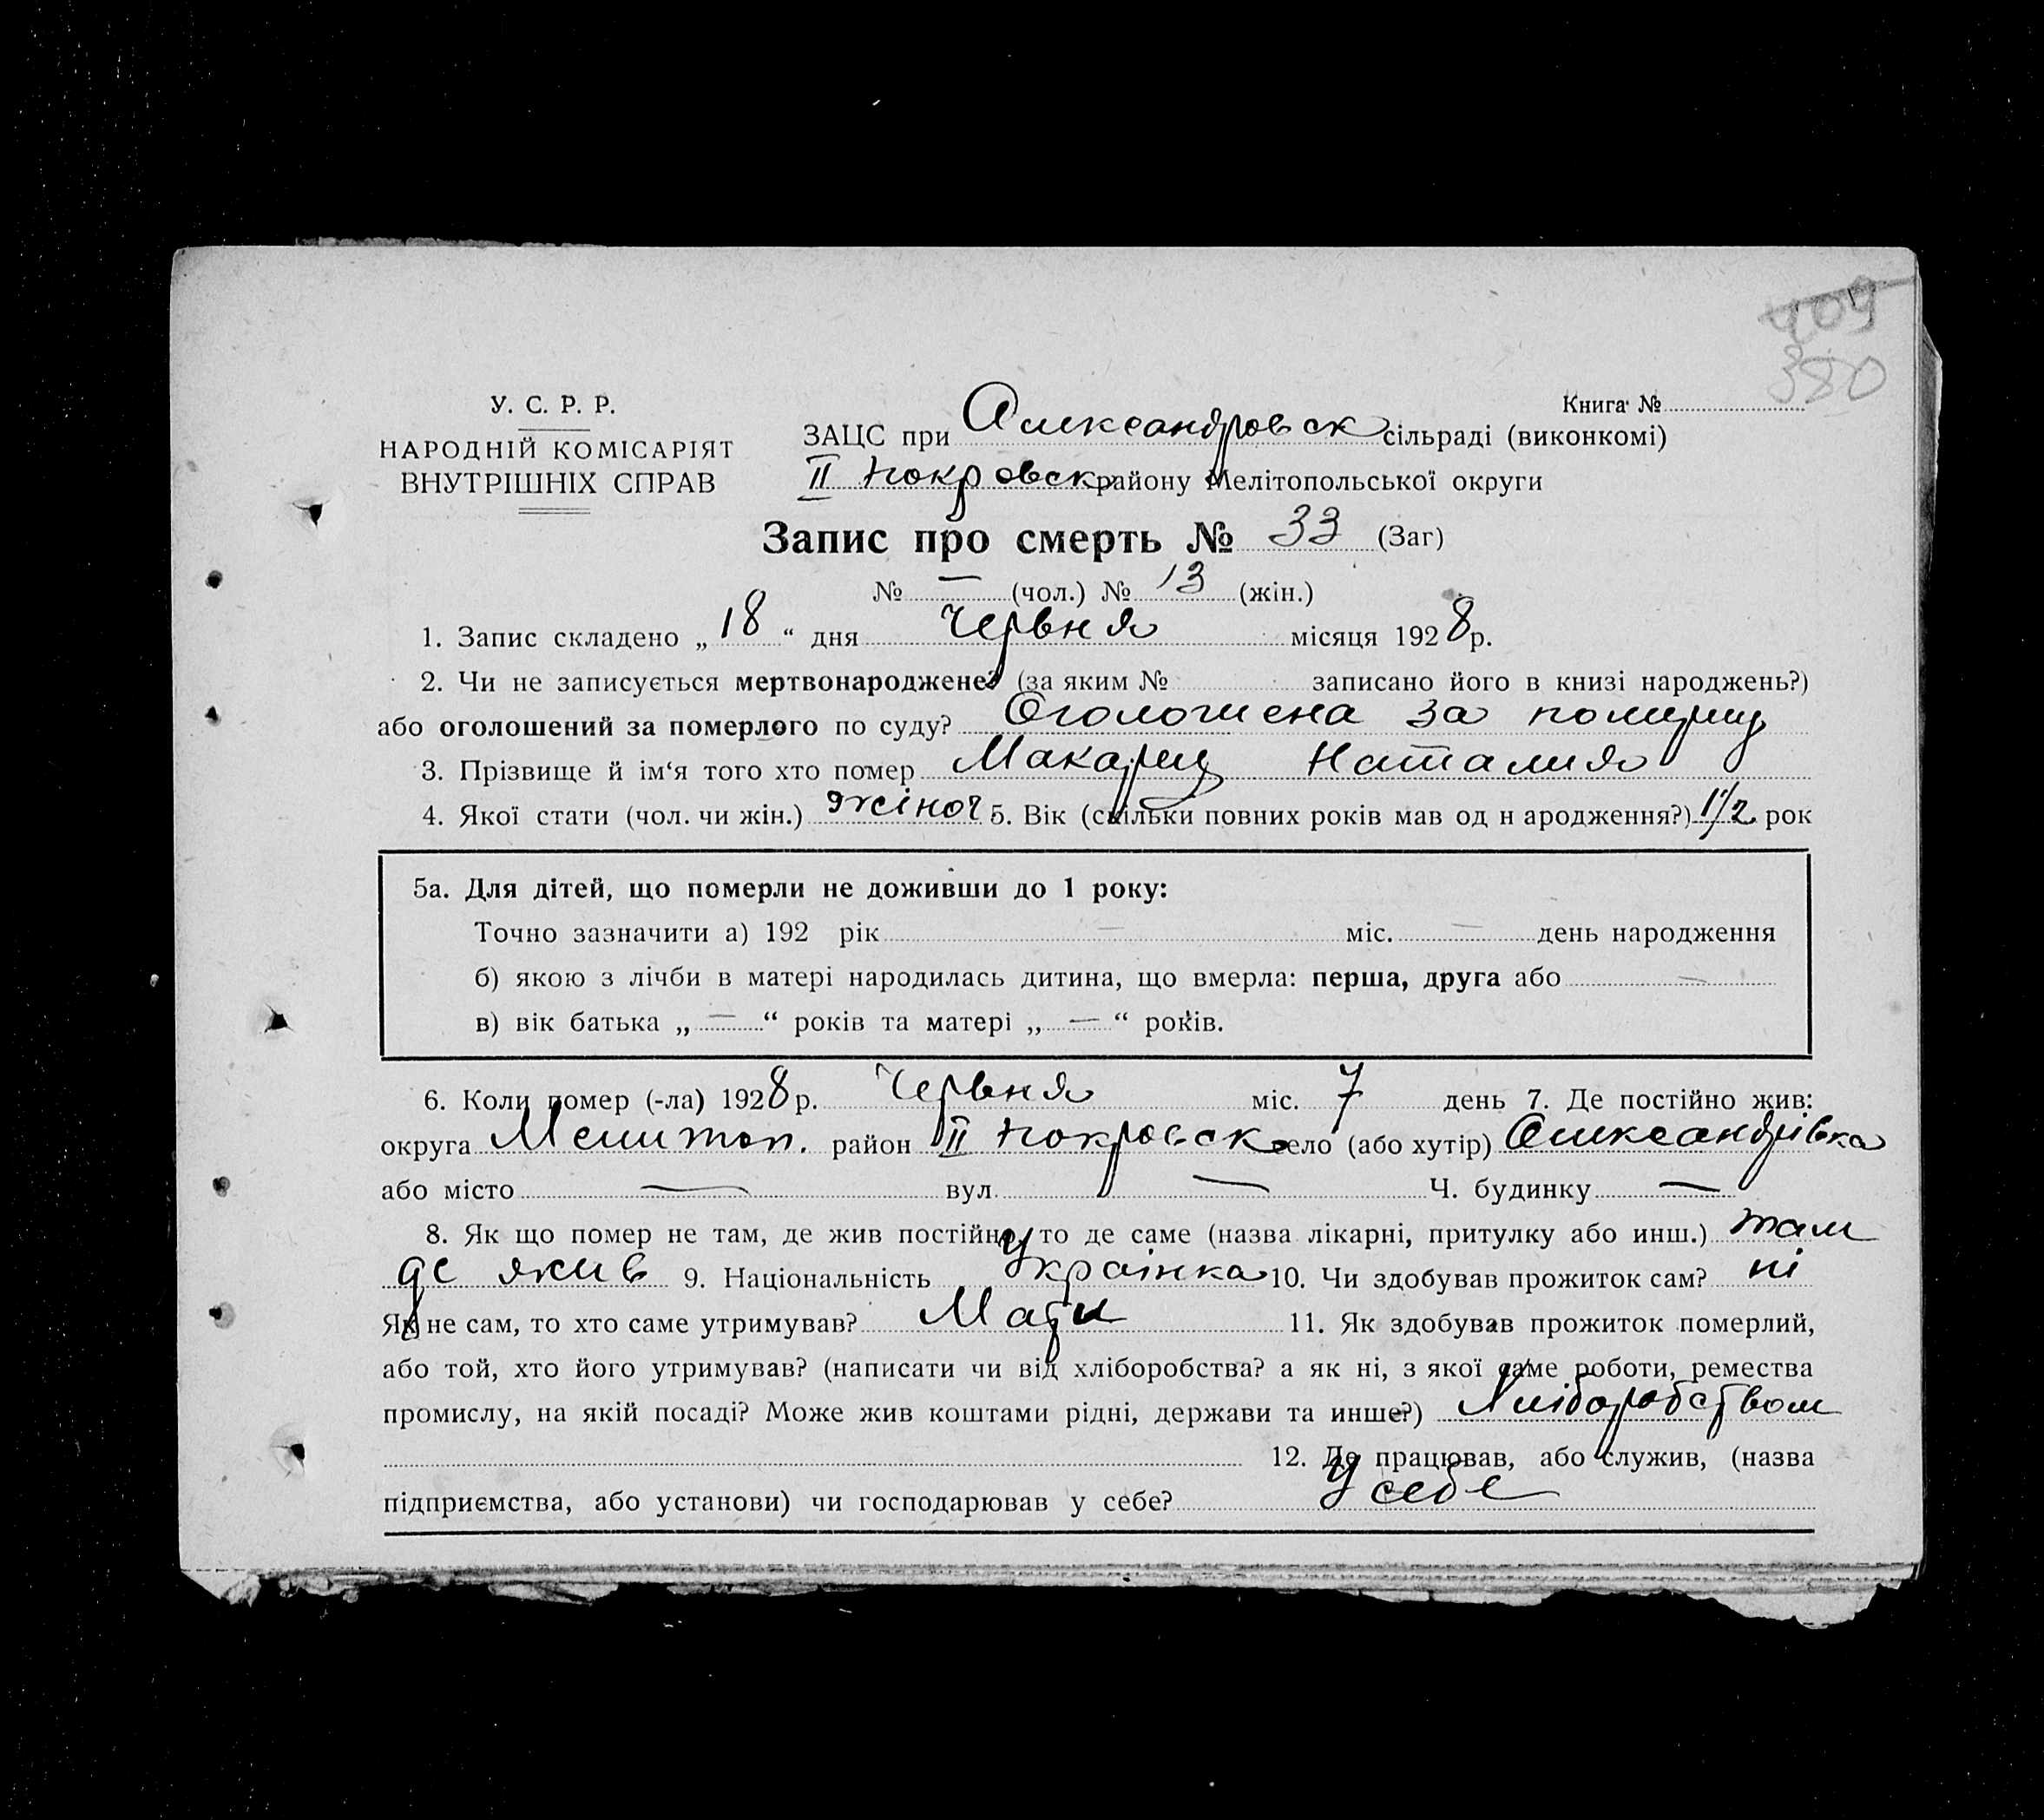 409
380
У. С. Р. Р.
НАРОДНІЙ КОМІСАРІЯТ
ВНУТРІШНІХ СПРАВ
Книга №
ЗАЦС при Александровск сільраді (виконкомі)
II Покровск району Мелітопольської округи
Запис про смерть № 33 (Заг)
№ — (чол.) № 13 (жін.)
1. Запис складено „ 18 “ дня Червня місяця 1928 р.
2. Чи не записується мертвонароджене? (за яким № записано його в книзі народжень?)
або оголошений за померлого по суду? Оголошена за
3. Прізвище й ім‘я того хто помер Наталия
4. Якої стати (чол. чи жін.) жіноч 5. Вік (скільки повних років мав од н ародження?) 1 1/2 рок
5а. Для дітей, що померли не доживши до 1 року:
Точно зазначити а) 192 рік — міс. — день народження
б) якою з лічби в матері народилась дитина, що вмерла: перша, друга або —
в) вік батька „ — “ років та матері „ — “ років.
6. Коли помер (-ла) 1928 р. Червня міс. 7 день 7. Де постійно жив:
округа Мелитоп. район II Покровск село (або хутір) Олександрівка
або місто — вул. — Ч. будинку —
8. Як що помер не там, де жив постійно, то де саме (назва лікарні, притулку або инш.) там
де жив 9. Національність Українка 10. Чи здобував прожиток сам? ні
Як не сам, то хто саме утримував? Мати 11. Як здобував прожиток померлий,
або той, хто його утримував? (написати чи від хліборобства? а як ні, з якої саме роботи, ремества
промислу, на якій посаді? Може жив коштами рідні, держави та инше?) Хліборобством
12. Де працював, або служив, (назва
підприємства, або установи) чи господарював у себе? У себе